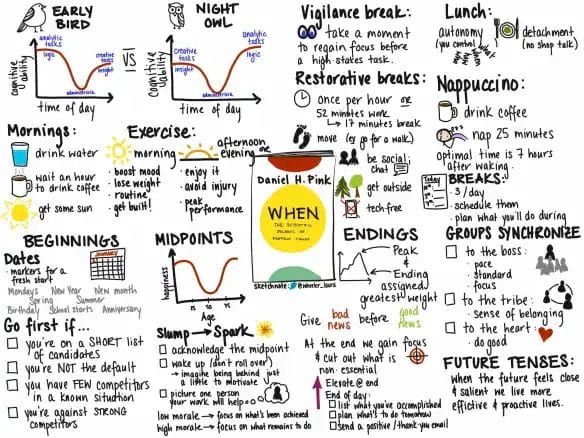 EARLY
BIRD
analytic
tasks
logic
creative
tasks
insight
administrative
cognitive
ability
time of day
VS
NIGHT
OWL
analytic
tasks
logic
creative
tasks
insight
administrative
cognitive
ability
time of day
Vigilance break:
take a moment
to regain focus before
a high-stakes task.
Lunch:
autonomy
(you control)
detachment
(no shop talk)
Restorative breaks:
once per hour or
52 minutes work
17 minutes break
move (eg go for a walk)
be social;
chat
get outside
tech-free
Nappuccino:
drink coffee
nap 25 minutes
optimal time is 7 hours
after waking.
Mornings:
drink water
wait an hour
to drink coffee
get some sun
Exercise:
morning
boost mood
lose weight
routine
get built!
afternoon
evening or
enjoy it
avoid injury
peak
performance
Daniel H. Pink
WHEN
THE SCIENTIFIC
SECRETS OF
PERFECT TIMING
sketchnote @wheeler_laura
BREAKS:
Today
3 / day
schedule them
plan what you'll do during
BEGINNINGS
Dates
markers for a
fresh start
JANUARY
Mondays New Year New month
Spring Summer
Birthday School starts Anniversary
Go first if...
you're on a SHORT list
of candidates
you're NOT the default
you have FEW competitors
in a known situation
you're against STRONG
competitors
MIDPOINTS
happiness
Age
Slump → Spark
acknowledge the midpoint
wake up (don't roll over)
→ imagine being behind just
a little to motivate
picture one person
your work will help
low morale → focus on what's been achieved
high morale → focus on what remains to do
ENDINGS
Peak
&
Ending
assigned
greatest weight
Give bad news before good news
At the end we gain focus
& cut out what is
non-essential
Elevate @ end
End of day:
list what you've accomplished
plan what's to do tomorrow
send a positive / thank you email
GROUPS SYNCHRONIZE
to the boss:
pace
standard
focus
to the tribe:
sense of belonging
to the heart:
do good
FUTURE TENSES:
when the future feels close
& salient we live more
effective & proactive lives.